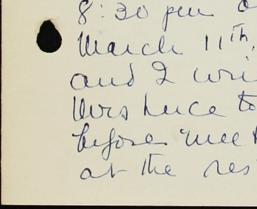 8:30 pm
March 11th,
and I wri
Mrs Luce to
before mee
at the res